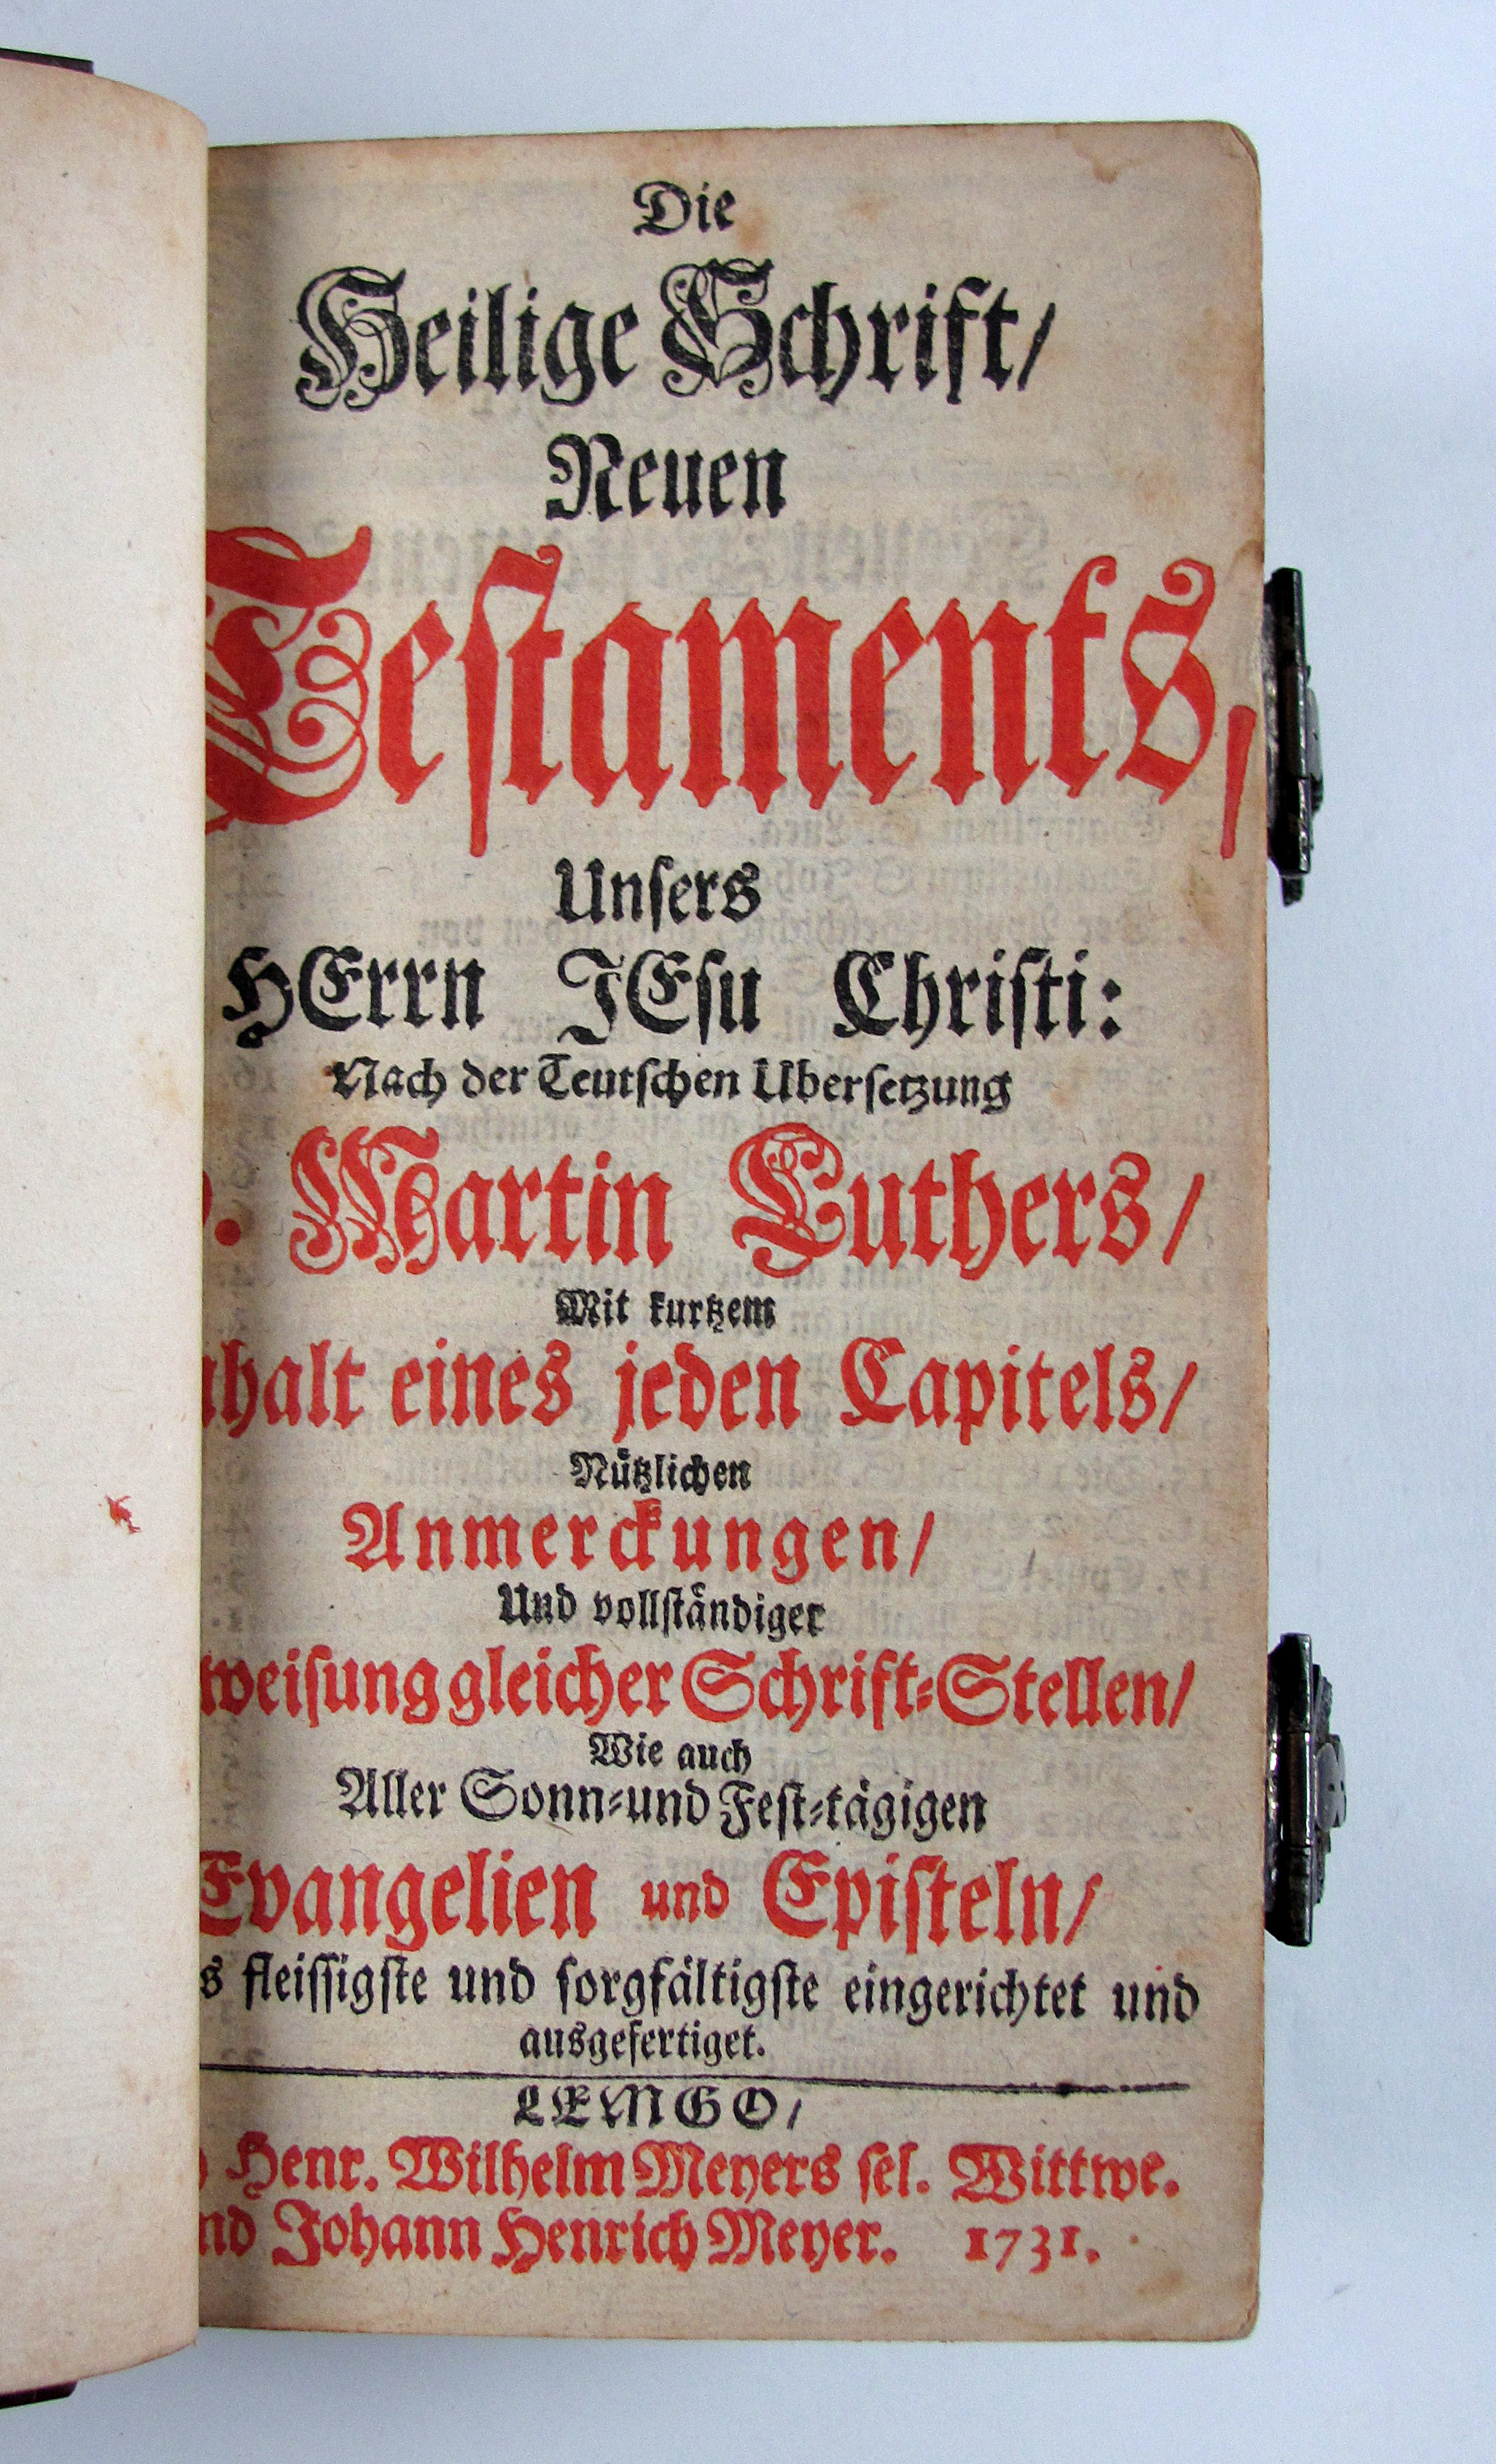 Die
Heilige Schrift/
Neuen
Testaments,
Unsers
HErrn JEsu Christi:
Nach der Teutschen Übersetzung
. Martin Luthers/
Mit kurtzem
nhalt eines jeden Capitels/
Nützlichen
Anmerckungen/
Und vollständiger
weisung gleicher Schrift-Stellen/
Wie auch
Aller Sonn-und Fest-tägigen
Evangelien und Episteln/
s fleissigste und sorgfältigste eingerichtet und
ausgefertiget.
LEMGO/
Henr. Wilhelm Meyers sel. Wittwe.
nd Johann Henrich Meyer. 1731.